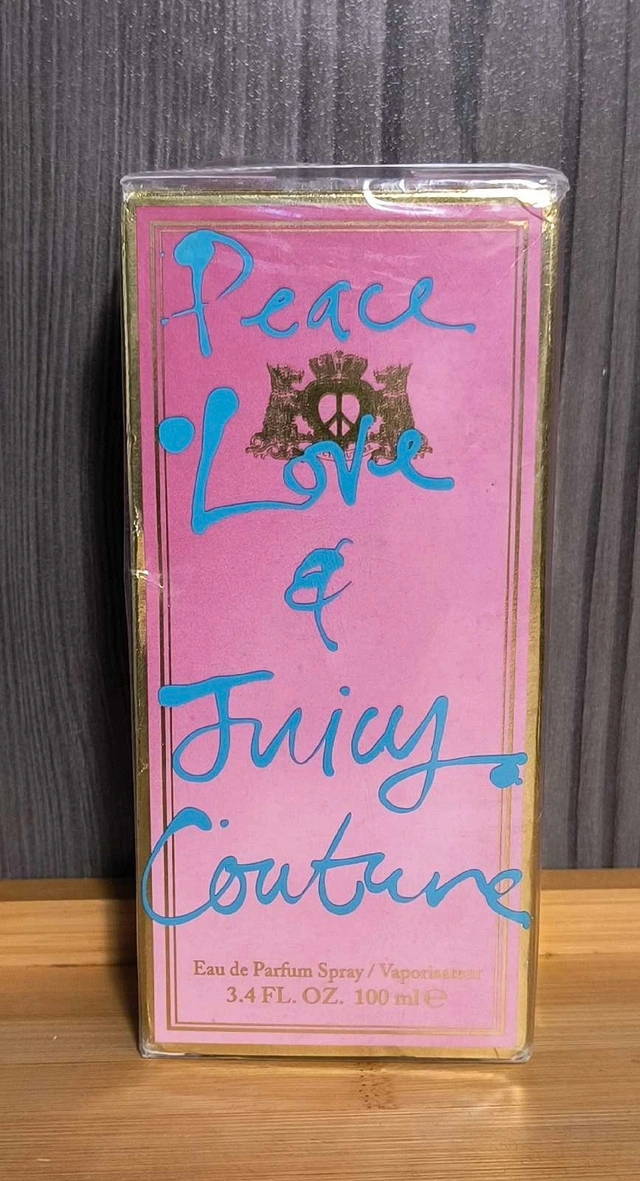 Peace
Love
&
Juicy
Couture
Eau de Parfum Spray / Vaporisateur
3.4 FL. OZ. 100 ml ℮